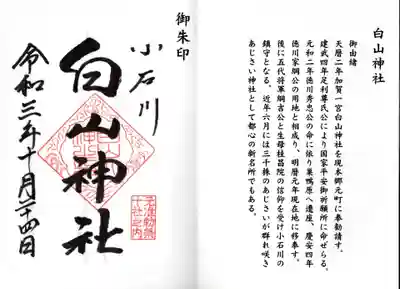 白山神社
御由緒
天暦二年加賀一宮白山神社を現本郷元町に奉勧請す。
建武四年足利尊氏公により国家平安御祈願所に命ぜらる。
元和二年徳川秀忠公の命に依り巣鴨原へ遷座、慶安四年
徳川家綱公の用地と相成り、明暦元年現在地に移奉す。
後に五代将軍綱吉公と生母桂昌院の信仰を受け小石川の
鎮守となる。近年六月には三千株のあじさいが群れ咲き
あじさい神社として都心の新名所でもある。
御朱印
小石川
白山神社
准勅祭
十社之内
令和三年十月二十四日